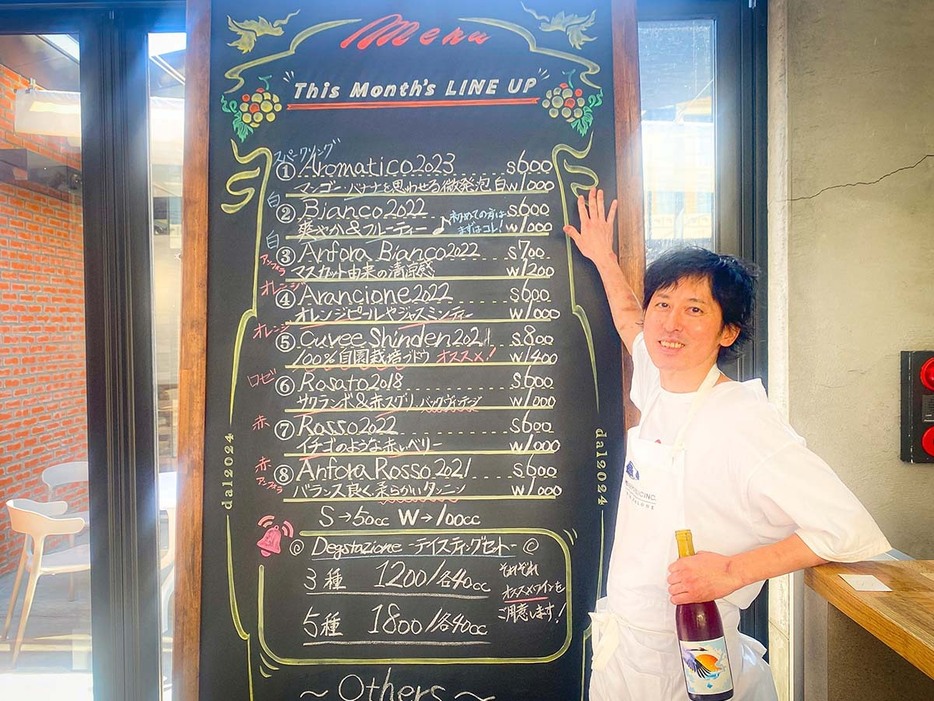 Menu
"This Month's LINE UP"
スパークリング
① Aromatico 2023 S600
マンゴー・バナナを思わせる微発泡 白 W1000
白
② Bianco 2022 S600
爽やか&フルーティー♪ 初めての方はまずはコレ! W1000
白
アンフォラ
③ Anfora Bianco 2022 S700
マスカット由来の清涼感 W1200
オレンジ
④ Arancione 2022 S600
オレンジピールやジャスミンティー W1000
オレンジ
⑤ Cuvee Shinden 2021 S800
100%自園栽培ブドウ オススメ! W1400
ロゼ
⑥ Rosato 2018 S600
サクランボ&赤スグリ バックヴィンテージ W1000
赤
⑦ Rosso 2022 S600
イチゴのような赤いベリー W1000
赤
アンフォラ
⑧ Anfora Rosso 2021 S600
バランス良く、柔らかいタンニン W1000
S→50cc W→100cc
Degstazione -テイスティングセット-
3種 1200/各40cc
5種 1800/各40cc
それぞれ
オススメワインを
ご用意します!
~Others~
dal2024
dal2024